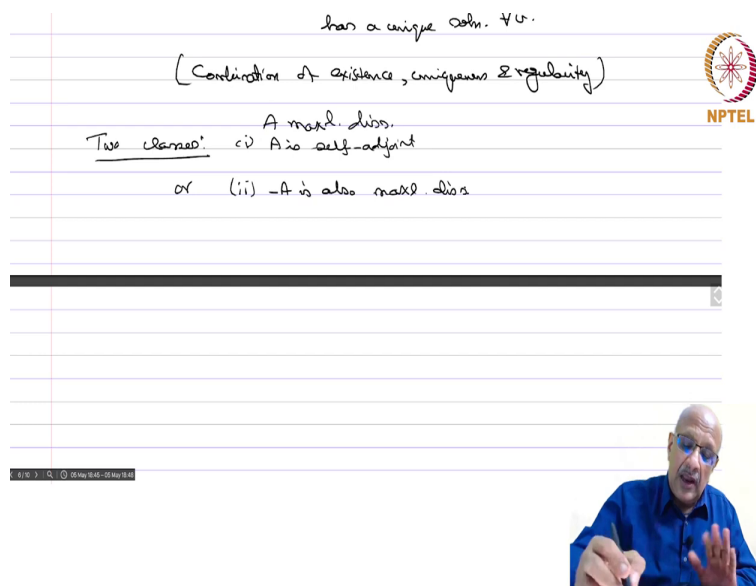 has a unique soln. ∀v.
(Combination of existence, uniqueness & regularity)
NPTEL
A maxl. diss.
Two classes: (i) A is self-adjoint
or (ii) -A is also maxl. diss
6/10 05 May 18:45 - 05 May 18:48